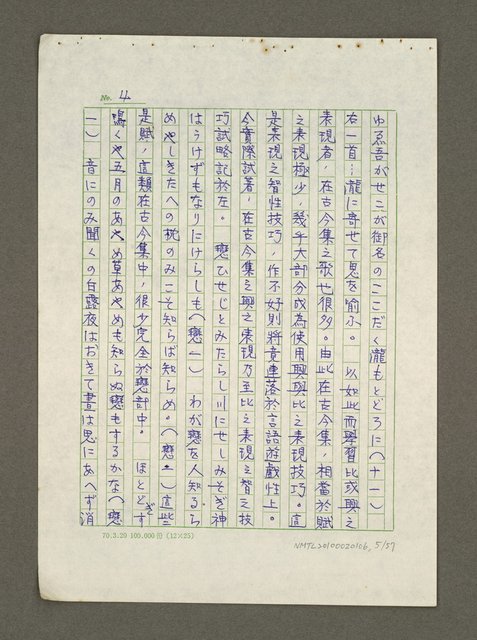 No. 4
ゆゑ吾がせこが御名のここだく瀧もとどろに(十一)
右一首:瀧に寄せて思を喻ふ。 以如此而學習比或興之
表現者,在古今集之歌也很多。由此在古今集,相當於賦
之表現極少,幾乎大部分成為使用興與比之表現技巧。這
是表現之智性技巧,作不好則將竟墮落於言語遊戲性上。
今實際試著,在古今集之興之表現乃至比之表現之智之技
巧試略記於左。 戀ひせじとみたらし川にせしみそぎ神
はうけずもなりにけらしも(戀一) わが戀を人知るら
めやしきたへの枕のみこそ知らば知らめ。(戀一)這些
是賦,這類在古今集中,很少完全於戀部中。 ほととぎす
鳴くや五月のあやめ草あやめも知らぬ戀もするかな(戀
一) 音にのみ聞くの白露夜はおきて晝は思にあへず消
70.3.20 100.000份 (12×25)
NMTL20100020106, 5/57